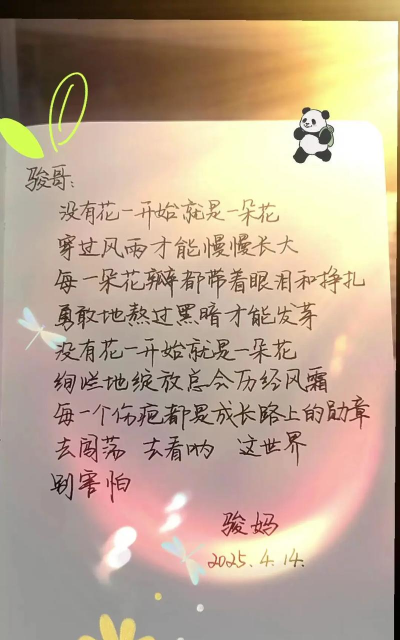 骏哥：
没有花一开始就是一朵花
穿过风雨才能慢慢长大
每一朵花瓣都带着眼泪和挣扎
勇敢地熬过黑暗才能发芽
没有花一开始就是一朵花
绚烂地绽放总会历经风霜
每一个伤疤都是成长路上的勋章
去闯荡 去看哟 这世界
别害怕
骏妈
2025.4.14.